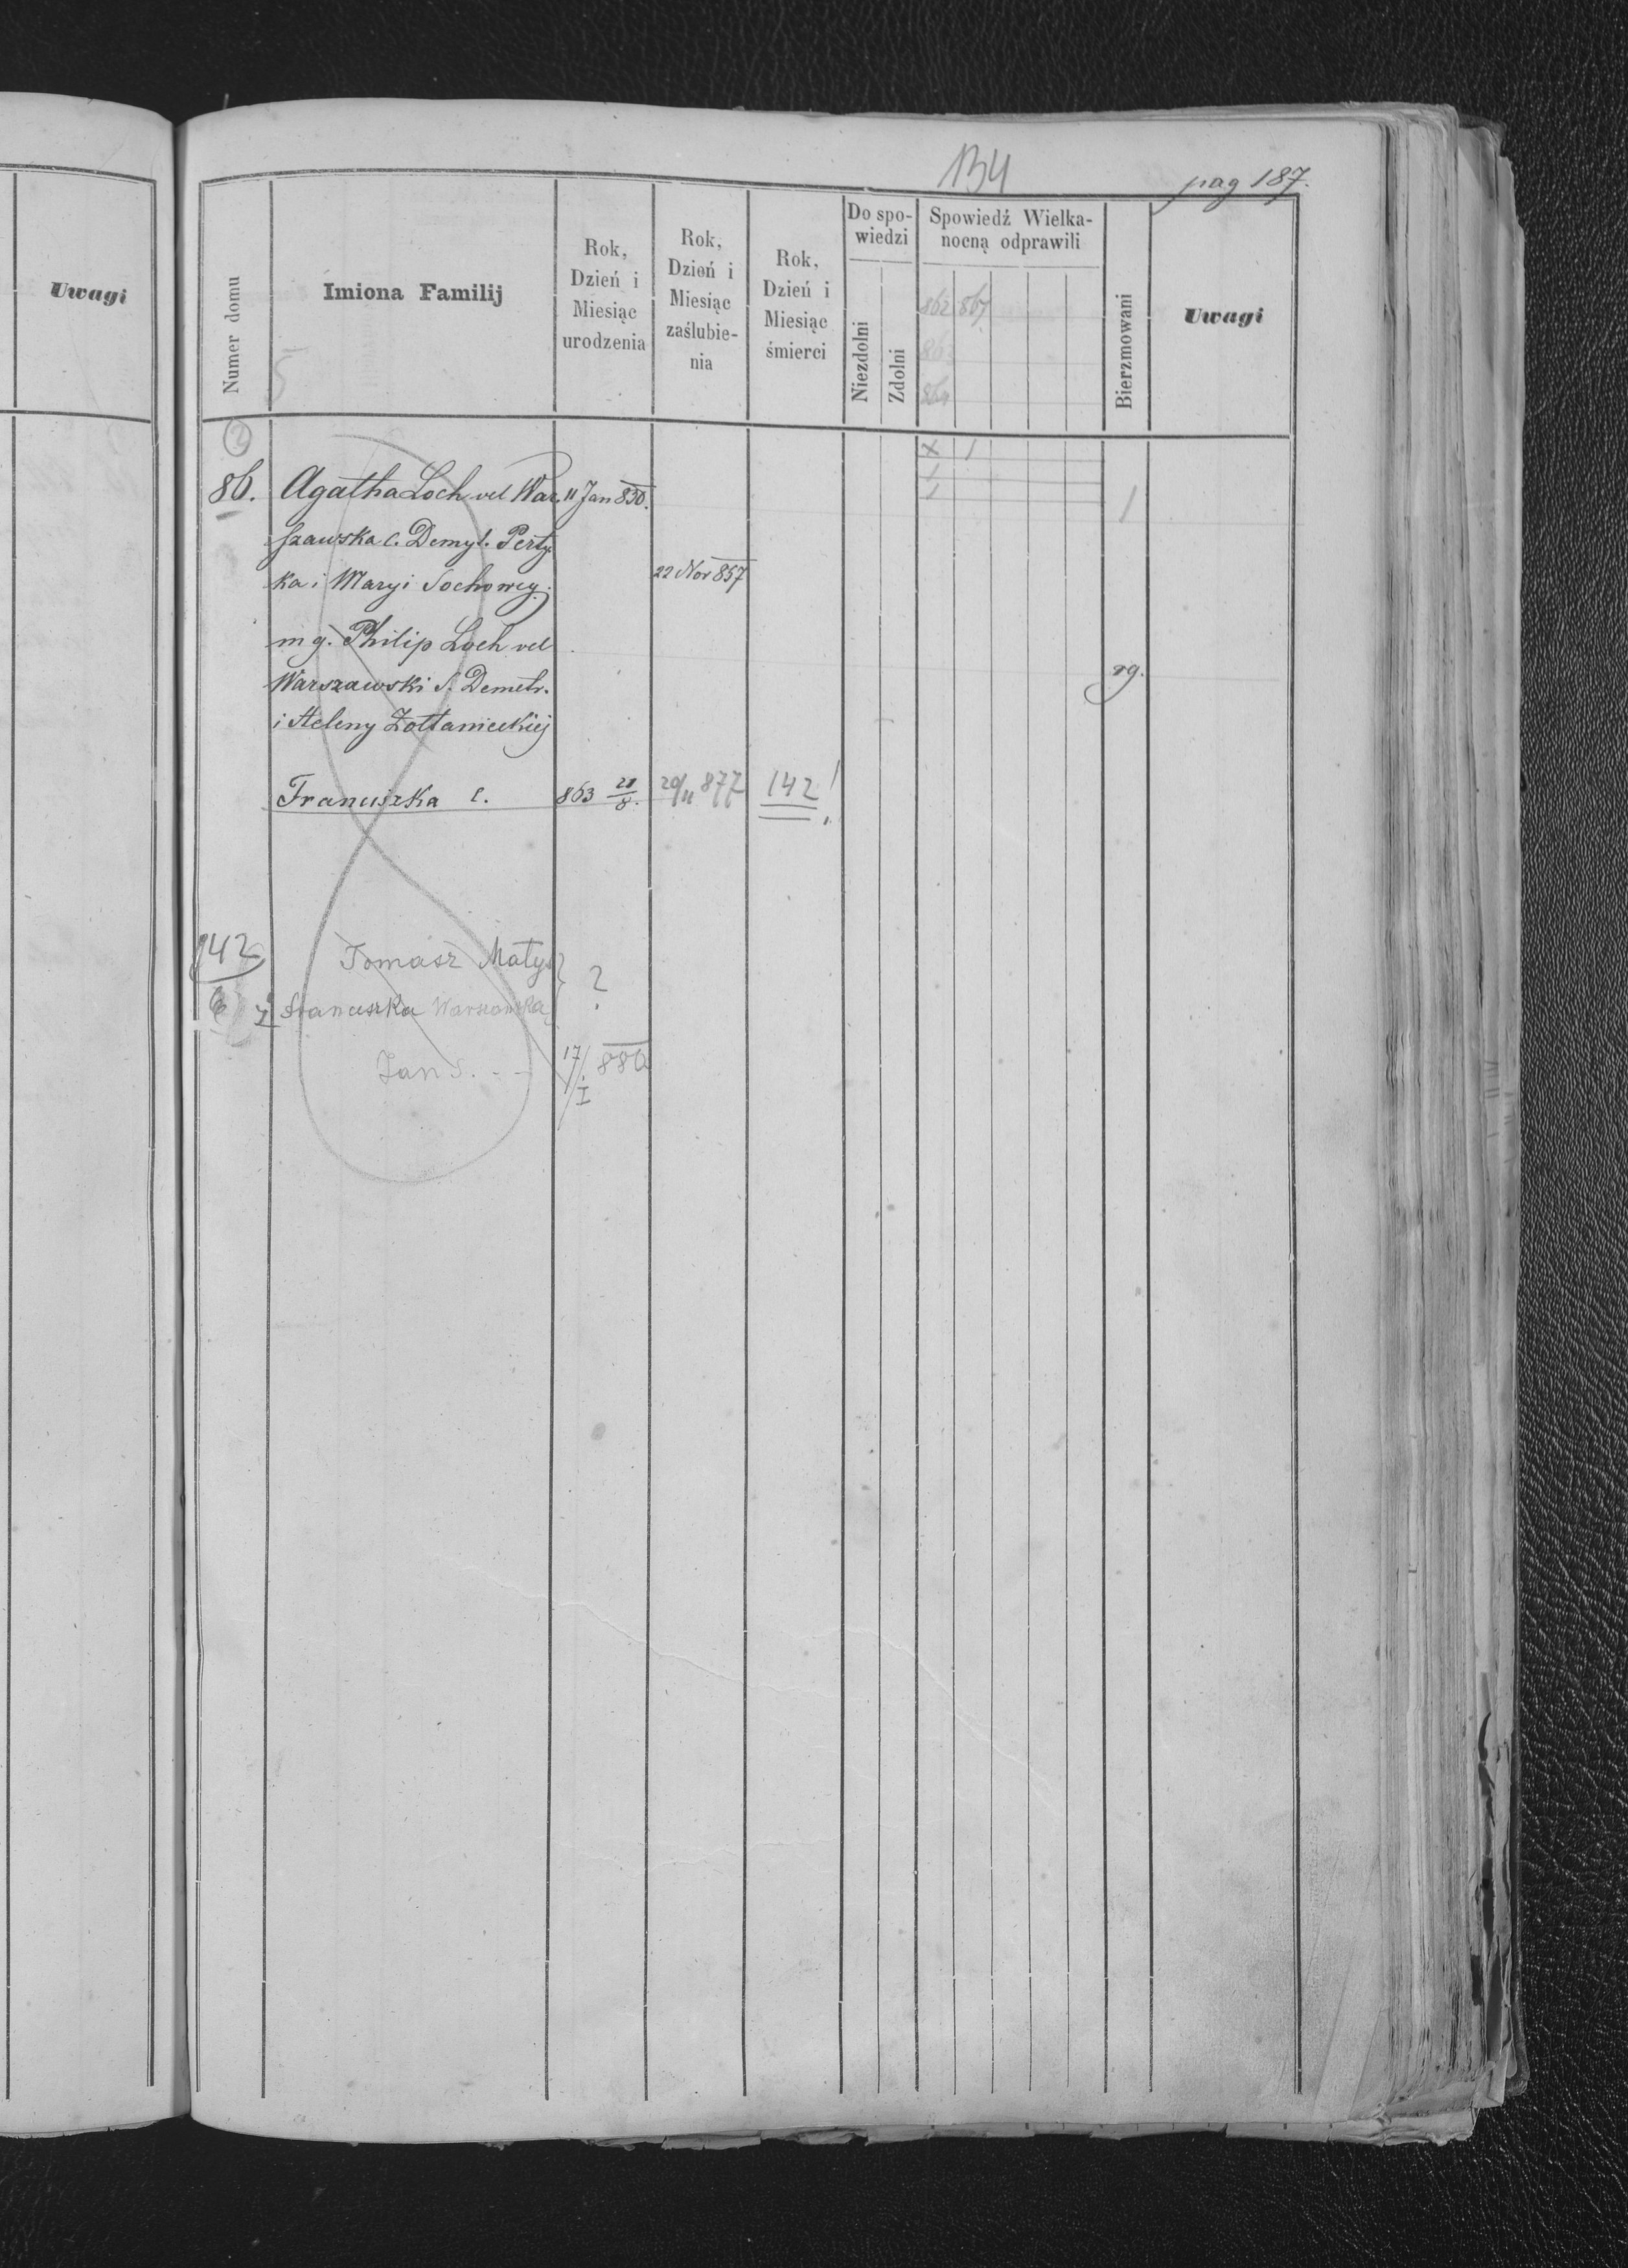 134
pag 187.
Uwagi
Numer domu
Imiona Familij
Rok,
Dzień i
Miesiąc
urodzenia
Rok,
Dzień i
Miesiąc
zaślubie-
nia
Rok,
Dzień i
Miesiąc
śmierci
Do spo-
wiedzi
Niezdolni
Zdolni
Spowiedź Wielka-
nocną odprawili
862 867
863
864
Bierzmowani
Uwagi
5
2
x 1
1
1
86. Agatha Loch vel War. 11 Jan 830.
szawska c. Demyt. Perty-
ka i Maryi Sochowey. 22 Nov 857
m g. Philip Loch vel
Warszawski S. Demetr. rg.
i Heleny Zoltanieckiej
Franciszka c. 863 28/8. 20/11 877 142!
142 Tomasz Matys ?
6 z Franciszka Warszawska
Jan S. - - 17/I 886